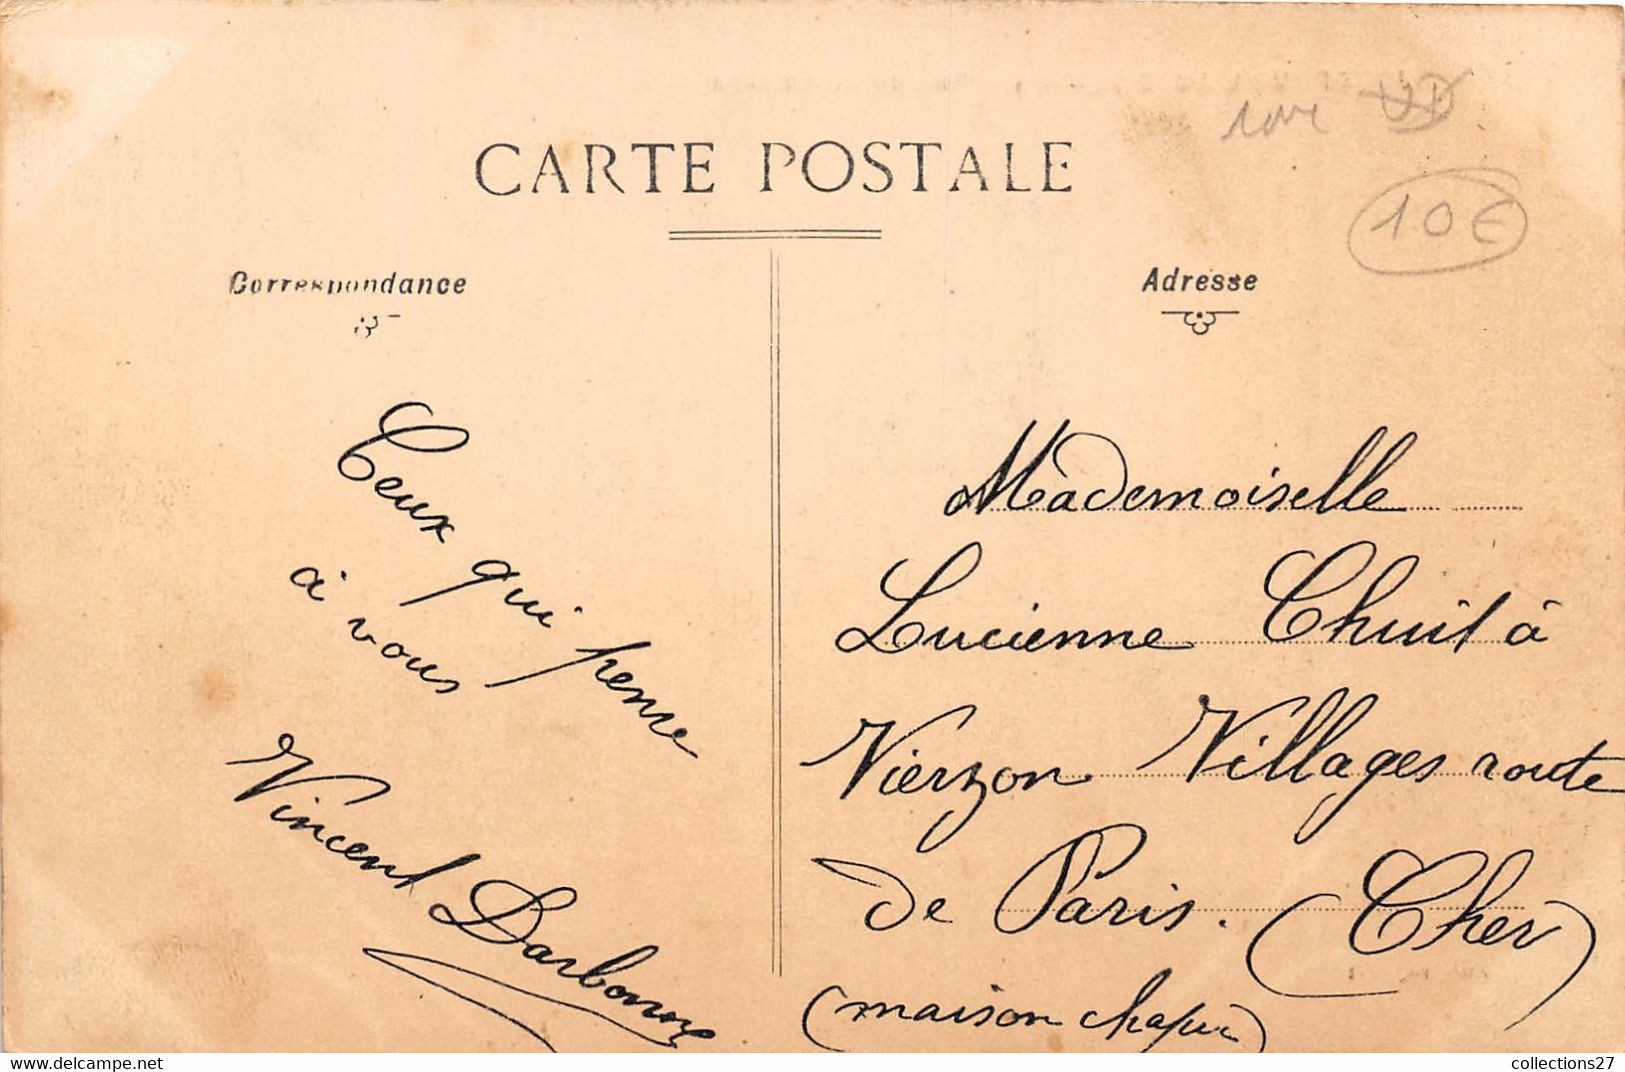 CARTE POSTALE
rare
10€
Correspondance
Adresse
Ceux qui pense
à vous
Vincent Darbonne
Mademoiselle
Lucienne Chuit à
Vierzon Villages route
de Paris. (Cher)
(maison
collections27